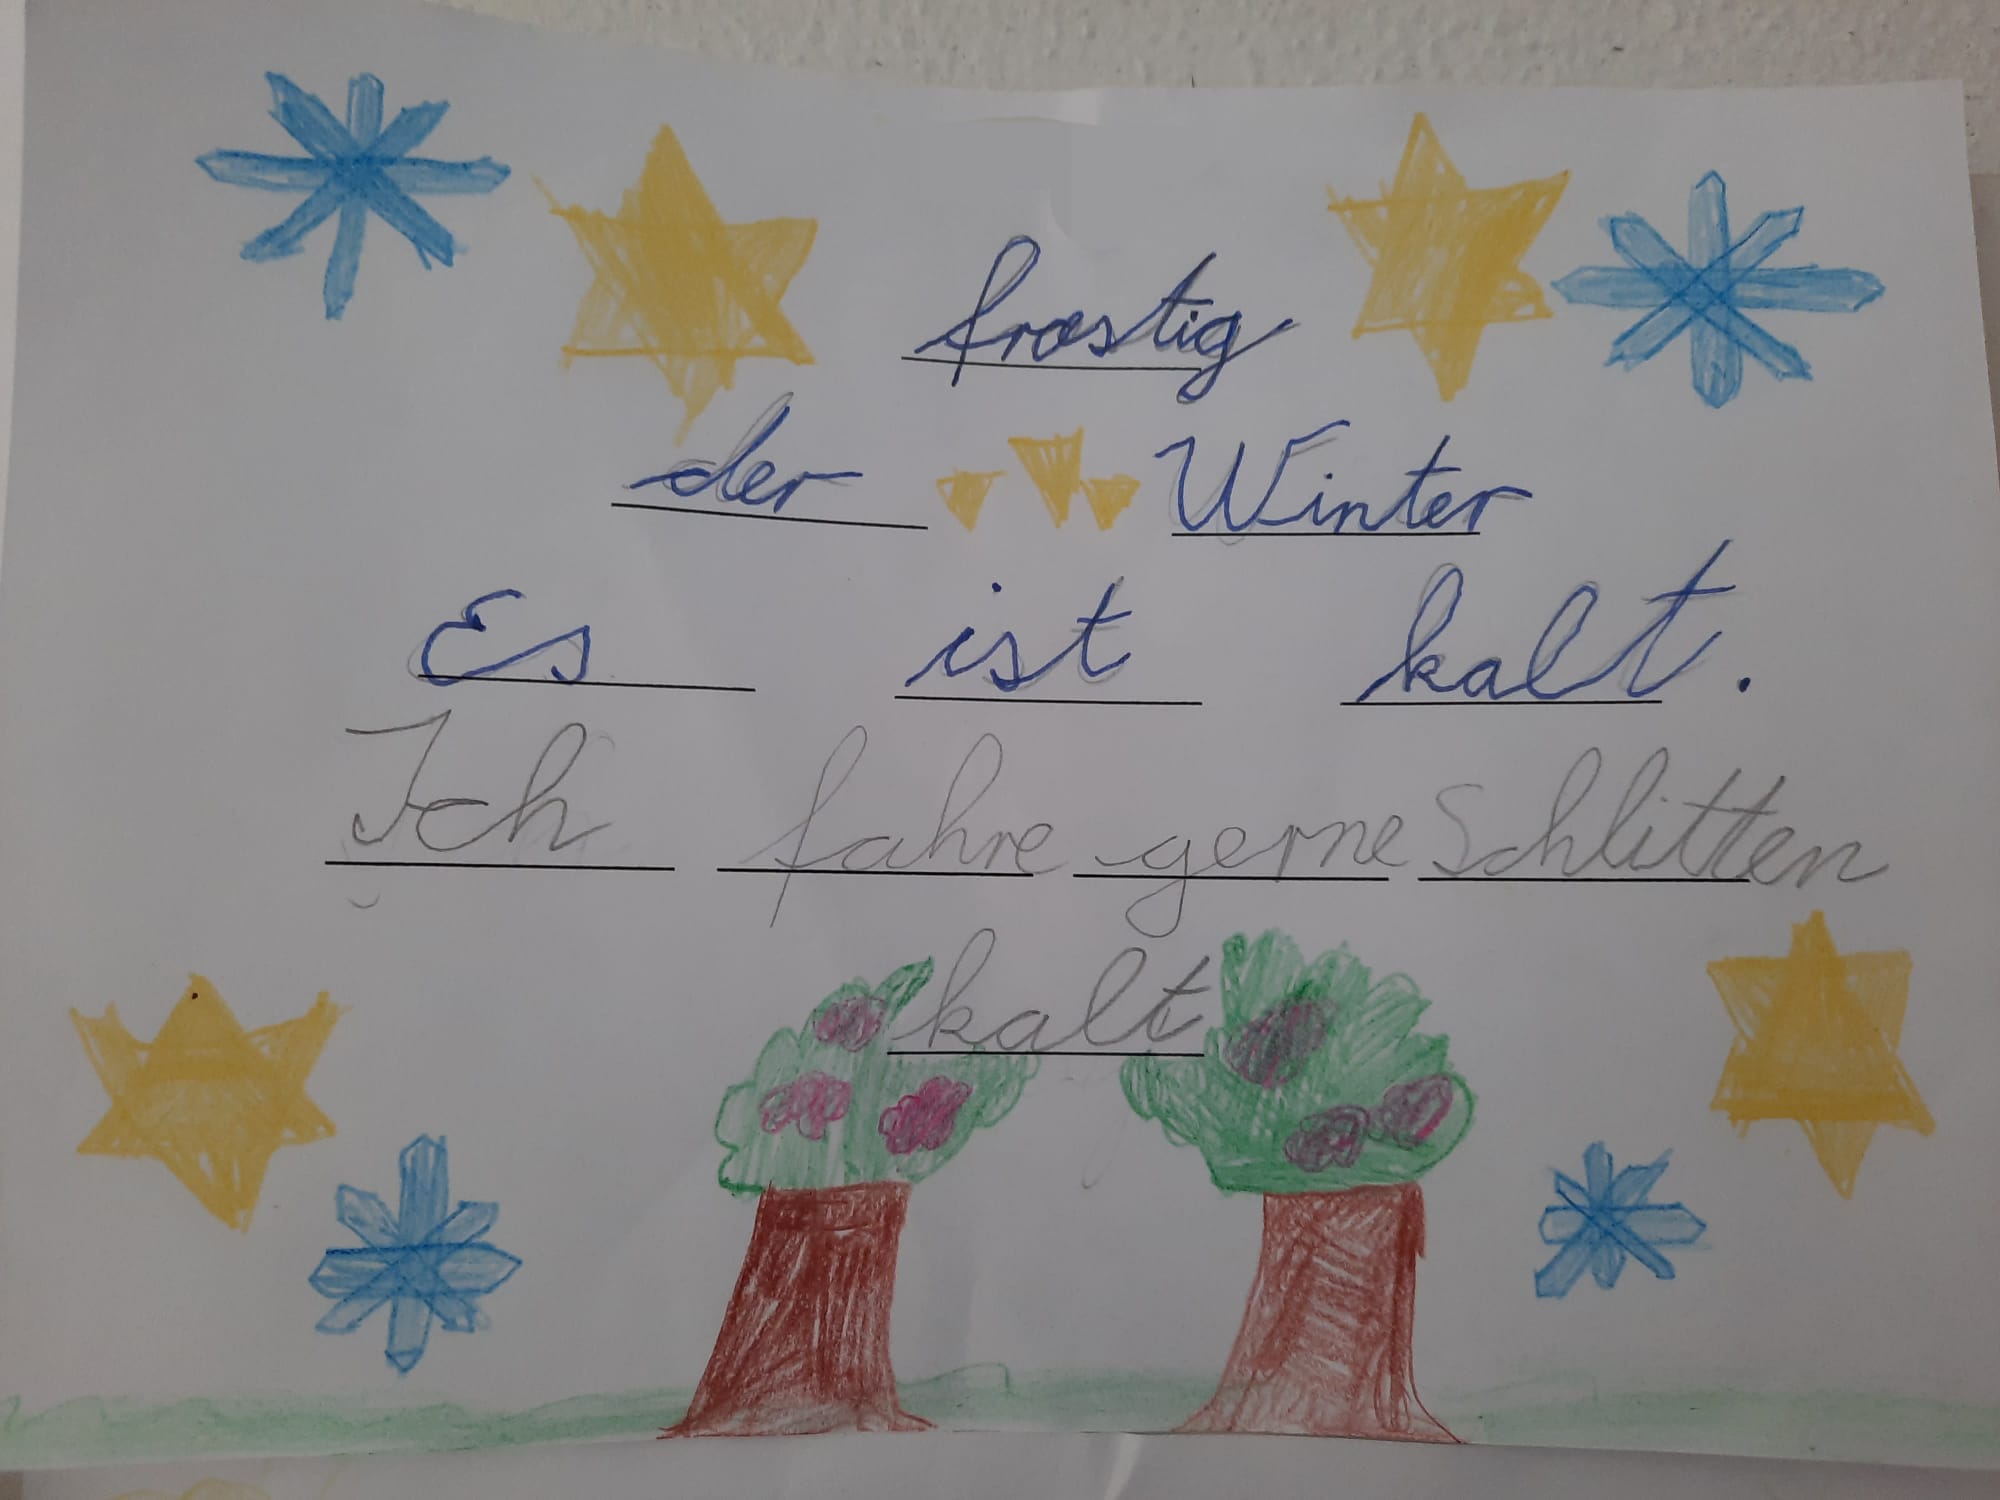 frostig
der Winter
Es ist kalt.
Ich fahre gerne Schlitten
kalt